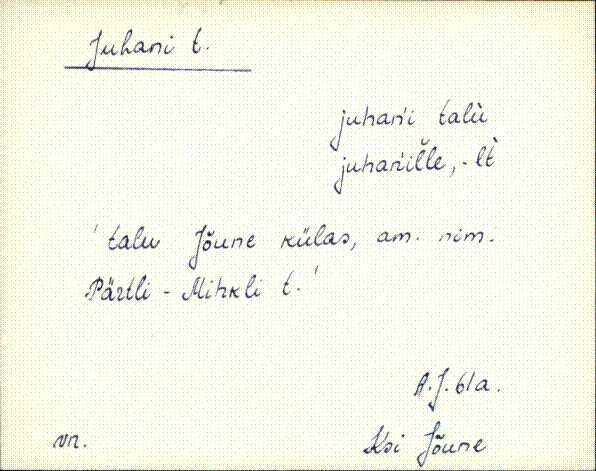 Juhani t.
juhań'i talù
juhań'il̆le, -lt̀
'talu Jõune külas, am. nim.
Pärtli - Mihkli t.'
A.J. 61a.
vn.
Ksi Jõune